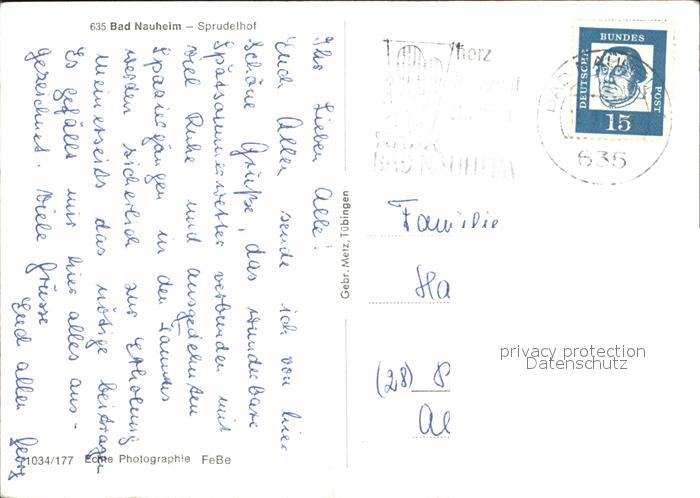 635 Bad Nauheim – Sprudelhof
Ihr Lieben Alle!
Euch Allen sende ich von hier
schöne Grüße, das wunderbare
Spätsommerwetter verbunden mit
viel Ruhe und ausgedehnten
Spaziergängen in den Taunus
werden sicherlich zur Erholung
meinerseits das nötige beitragen
Es gefällt mir hier alles aus-
gezeichnet. Viele Grüsse
Euch allen Georg
1034/177 Echte Photographie FeBe
Gebr. Metz, Tübingen
DEUTSCHE
BUNDES
POST
15
635
BAD NAUHEIM
herz
Familie
Ha
(28)
privacy protection
Datenschutz